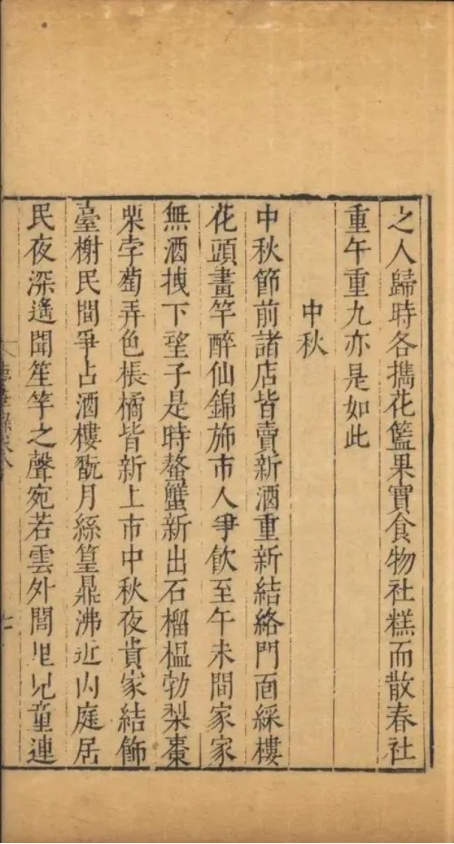 之人歸時各攜花籃果實食物社糕而散春社
重午重九亦是如此
中秋
中秋節前諸店皆賣新酒重新結絡門面綵樓
花頭畫竿醉仙錦斾市人爭飲至午未間家家
無酒拽下望子是時螯蟹新出石榴榲勃梨棗
栗孛萄弄色棖橘皆新上市中秋夜貴家結飾
臺榭民間爭占酒樓翫月絲篁鼎沸近内庭居
民夜深遙聞笙竽之聲宛若雲外閭里兒童連